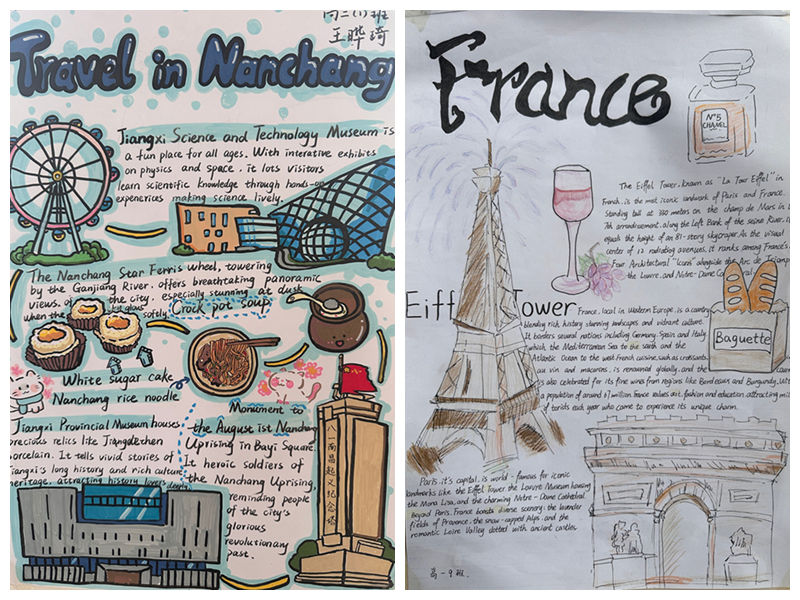 高二(1)班
王晔琦
Travel in Nanchang
Jiangxi Science and Technology Museum is
a fun place for all ages. With interative exhibits
on physics and space. it lots visitors
learn scientific knowledge through hands-on
expenerices making science lively.
The Nanchang Star Ferris wheel, towering
by the Ganjiang River. offers breathtating panoramic
views. of the city. especially stunning at dusk
when the softly
Crock pot soup
White sugar cake
Nanchang rice noodle
Monument to
the August 1st Nanchang
Uprising in Bayi Square.
It heroic soldiers of
the Nanchang Uprising,
reminding people
of the city's
glorious
revolutionary
past.
八一南昌起义纪念塔
Jiangxi Provincial Museum houses
precious relics like Jiangdezhen
porcelain. It tells vivid stories of
Jiangxi's long history and rich culture
heritage. attracting history lovers
France
N°5
CHANEL
The Eiffel Tower, known as "La Tour Eiffel" in
French, is the most iconic landmark of Paris and France.
Standing tall at 330 meters on the champ de Mars in
7th arrondissement, along the Left Bank of the seine River, it
equals the height of an 81-story skyscraper. As the visual
center of 12 radiating avenues, it ranks among France's
Four Architectural "Icons" alongside the Arc de Triomphe
the Louvre, and Notre-Dame
Eiff Tower
France, local in Western Europe, is a country
blending rich, history stunning landscapes and vibrant culture.
It borders several nations including Germany, Spain and Italy
which, the Mediterranean Sea to the south and the
Atlantic Ocean to the west French cuisine, such as croissants,
au vin and macarons, is renowned globally, and the
is also celebrated for its fine wines from regions like Bordeaux and Burgundy, With
a population of around 67 million France values art, fashion and education attracting
of torids each year who come to experience its unique charm.
Baguette
Paris, it's capital, is world-famous for iconic
landmarks like the Eiffel Tower the Louvre Museum housing
the Mona Lisa, and the charming Notre-Dame Cathedral.
Beyond Paris, France boasts diverse scenery: the lavender
fields of Provence, the snow-capped Alps, and the
romantic Loire Valley dotted with ancient castles.
高一9班.